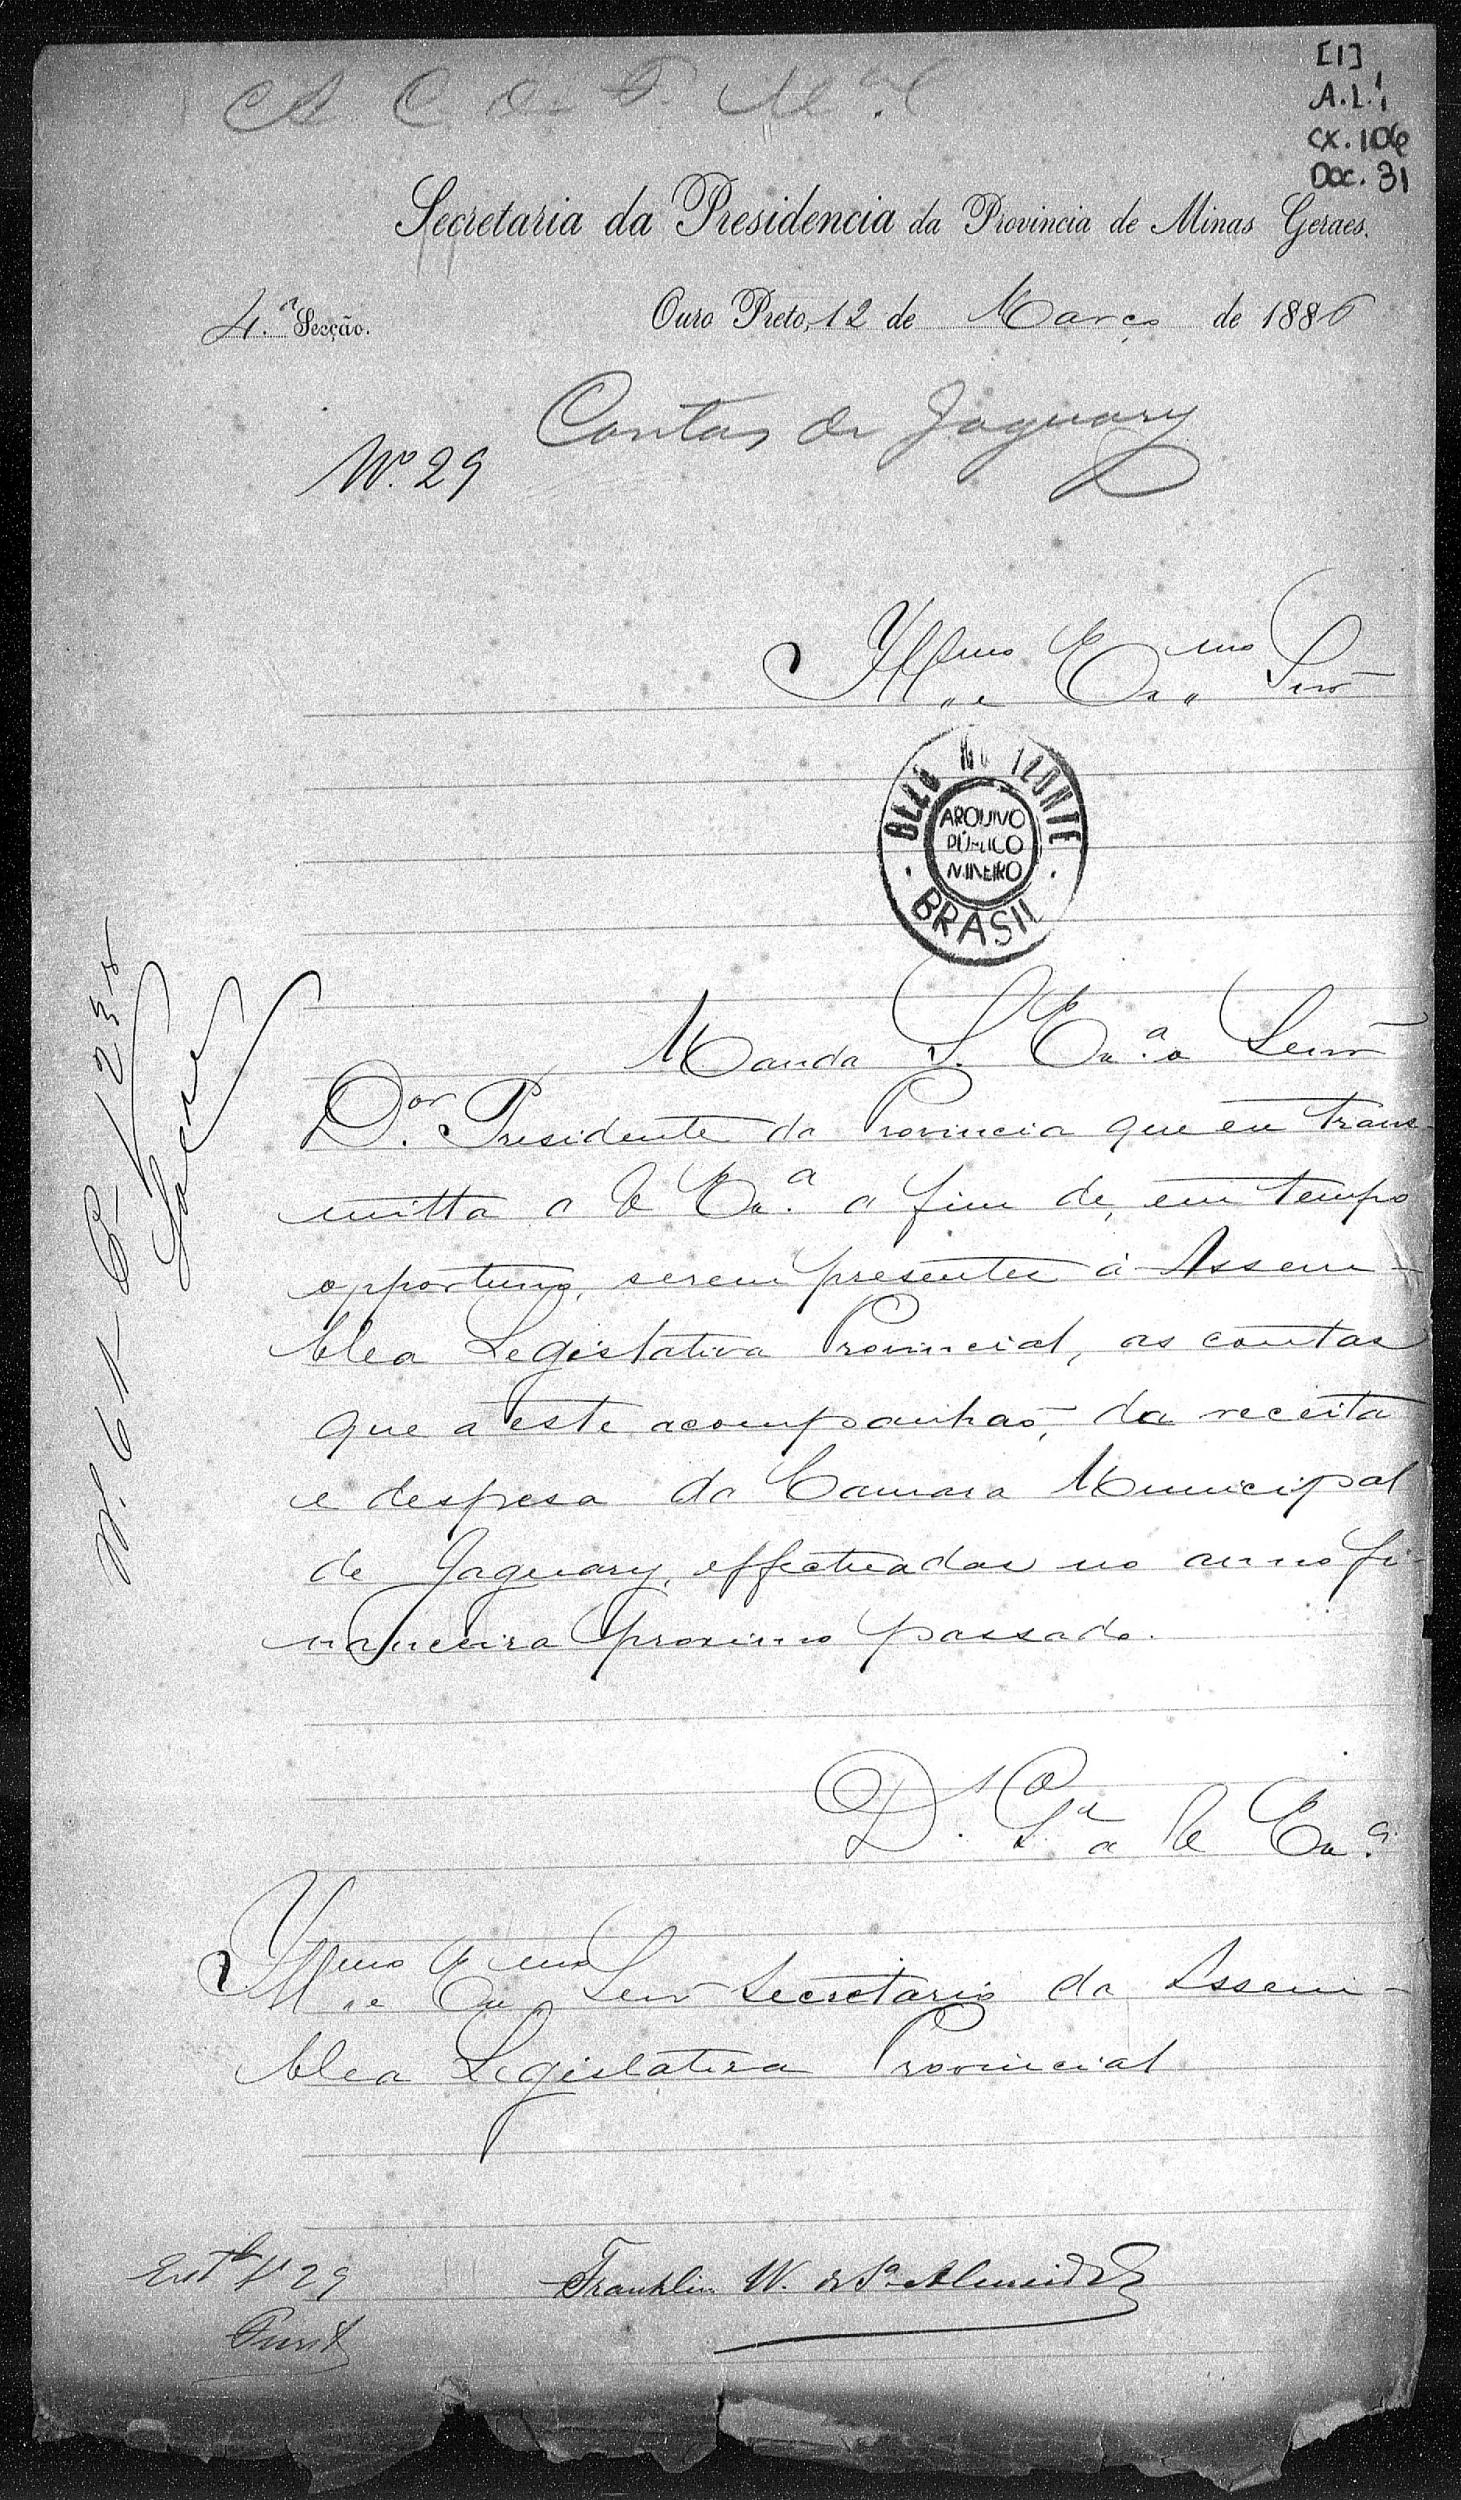 [1]
A.L.1
CX. 106
DOC. 31
A C. de
Secretaria da Presidencia da Provincia de Minas Geraes.
4.ª Secção. Ouro Preto, 12 de Março de 1886
Contas de Jaguary
Nº 29
Illmo e Exmo Senr
BELO HORIZONTE
ARQUIVO
PÚBLICO
MINEIRO
BRASIL
Manda S. Exª o Senr
Dor. Presidente da Provincia que eu trans-
mitta a V Exª. a fim de, em tempo
opportuno, serem presentes á Assem-
blea Legislativa Provincial, as contas
que a este acompanhão, da receita
e despesa da Camara Municipal
de Jaguary, effectuadas no anno fi-
nanceiro proximo passado.
D.s G.e a V Exª.
Illmo e Exmo Senr Secretario da Assem-
blea Legislativa Provincial
Nº 29
Franklin W. de Sª Almeida